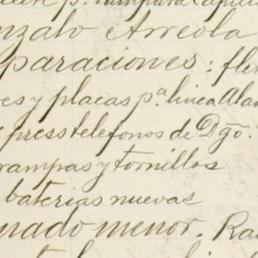 nzalo Arreola
paraciones: fle
es y placas pª linea Alam
press telefonos de Dgo.
rampas y tornillos
baterias nuevas
nado menor. Ra